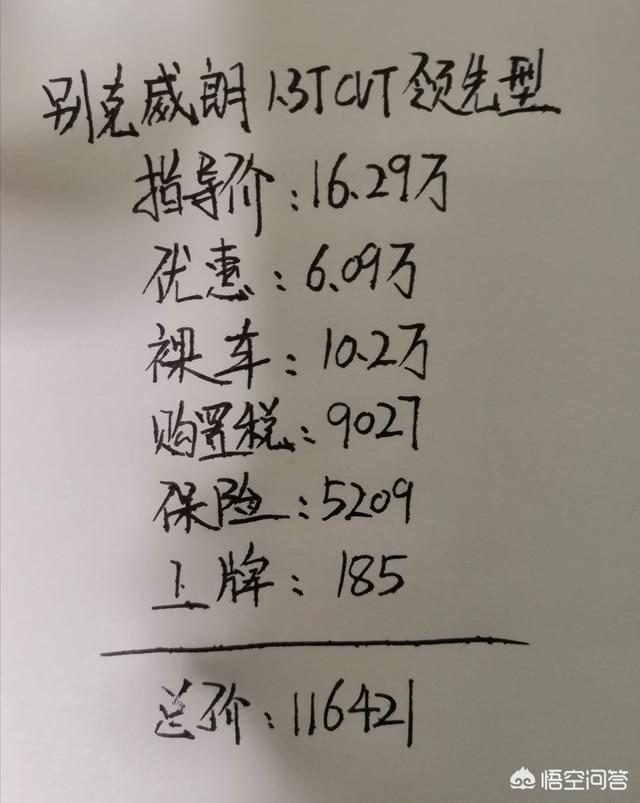 别克威朗 1.3T CVT 领先型
指导价：16.29万
优惠：6.09万
裸车：10.2万
购置税：9027
保险：5209
上牌：185
总价：116421
悟空问答